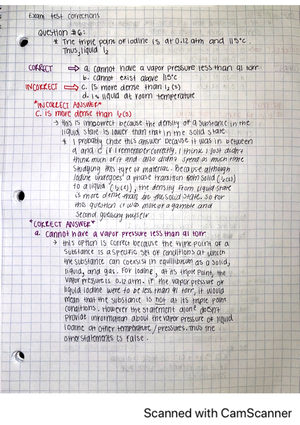 Exam test corrections
Question #6:
* The triple point of iodine is at 0.12 atm and 115°C.
Thus, liquid I₂
CORRECT → a. cannot have a vapor pressure less than 91 torr
b. cannot exist above 115°C
INCORRECT → c. is more dense than I₂(s)
d. is liquid at room temperature
*INCORRECT ANSWER*
c. is more dense than I₂(s)
→ this is incorrect because the density of a substance in the
liquid state is lower than that in the solid state
* I probably chose this answer because it was in between
a and c if I remember correctly. I think I just didn't
think much of it and also didn't spend as much time
studying this type of material. Because although
iodine undergoes a phase transition from solid (I₂(s))
to a liquid (I₂(l)), the density from liquid state
is more dense than the solid state, so for
this question it was just a gamble and
second guessing myself
*CORRECT ANSWER*
a. cannot have a vapor pressure less than 91 torr
→ this option is correct because the triple point of a
substance is a specific set of conditions at which
the substance can coexist in equilibrium as a solid,
liquid, and gas. For iodine, at its triple point, the
vapor pressure is 0.12 atm. If the vapor pressure of
liquid iodine were to be less than 91 torr, it would
mean that the substance is not at its triple point
conditions. However the statement alone doesn't
provide information about the vapor pressure of liquid
iodine at other temperature / pressures. thus the
other statements is false.
Scanned with CamScanner